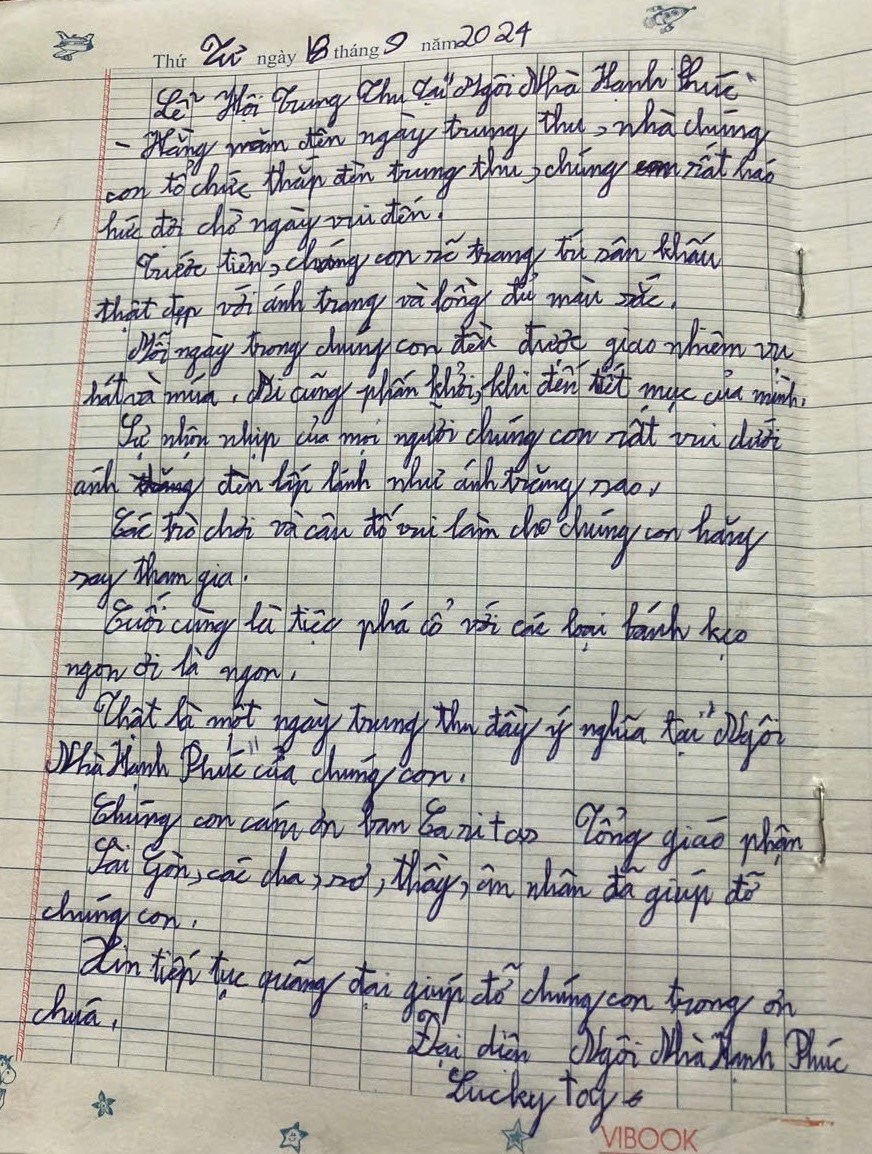 Thứ Tư ngày 18 tháng 9 năm 2024
Lễ Hội Trung Thu Tại "Ngôi Nhà Hạnh Phúc"
- Hằng năm đến ngày trung thu, nhà chúng
con tổ chức thắp đèn trung thu, chúng con rất háo
hức đợi chờ ngày vui đến.
Trước tiên, chúng con sẽ trang trí sân khấu
thật đẹp với ánh trang và lồng đủ màu sắc.
Mỗi ngày trong chúng con đều được giao nhiệm vụ
hát và múa. Ai cũng phấn khởi, khi đến tiết mục của mình.
Sự nhộn nhịp của mọi người chúng con rất vui dưới
ánh đèn lấp lánh như ánh trăng sao.
Các trò chơi và câu đố vui làm cho chúng con hăng
say tham gia.
Cuối cùng là tiệc phá cỗ với các loại bánh kẹo
ngon ơi là ngon.
Thật là một ngày trung thu đầy ý nghĩa tại "Ngôi
Nhà Hạnh Phúc" của chúng con.
Chúng con cám ơn ban Caritas Tổng giáo phận
Sài Gòn, các cha, sơ, thầy, ân nhân đã giúp đỡ
chúng con.
Xin tiếp tục quãng đại giúp đỡ chúng con trong ơn
chúa.
Đại diên Ngôi Nhà Hạnh Phúc
Lucky toy
VIBOOK